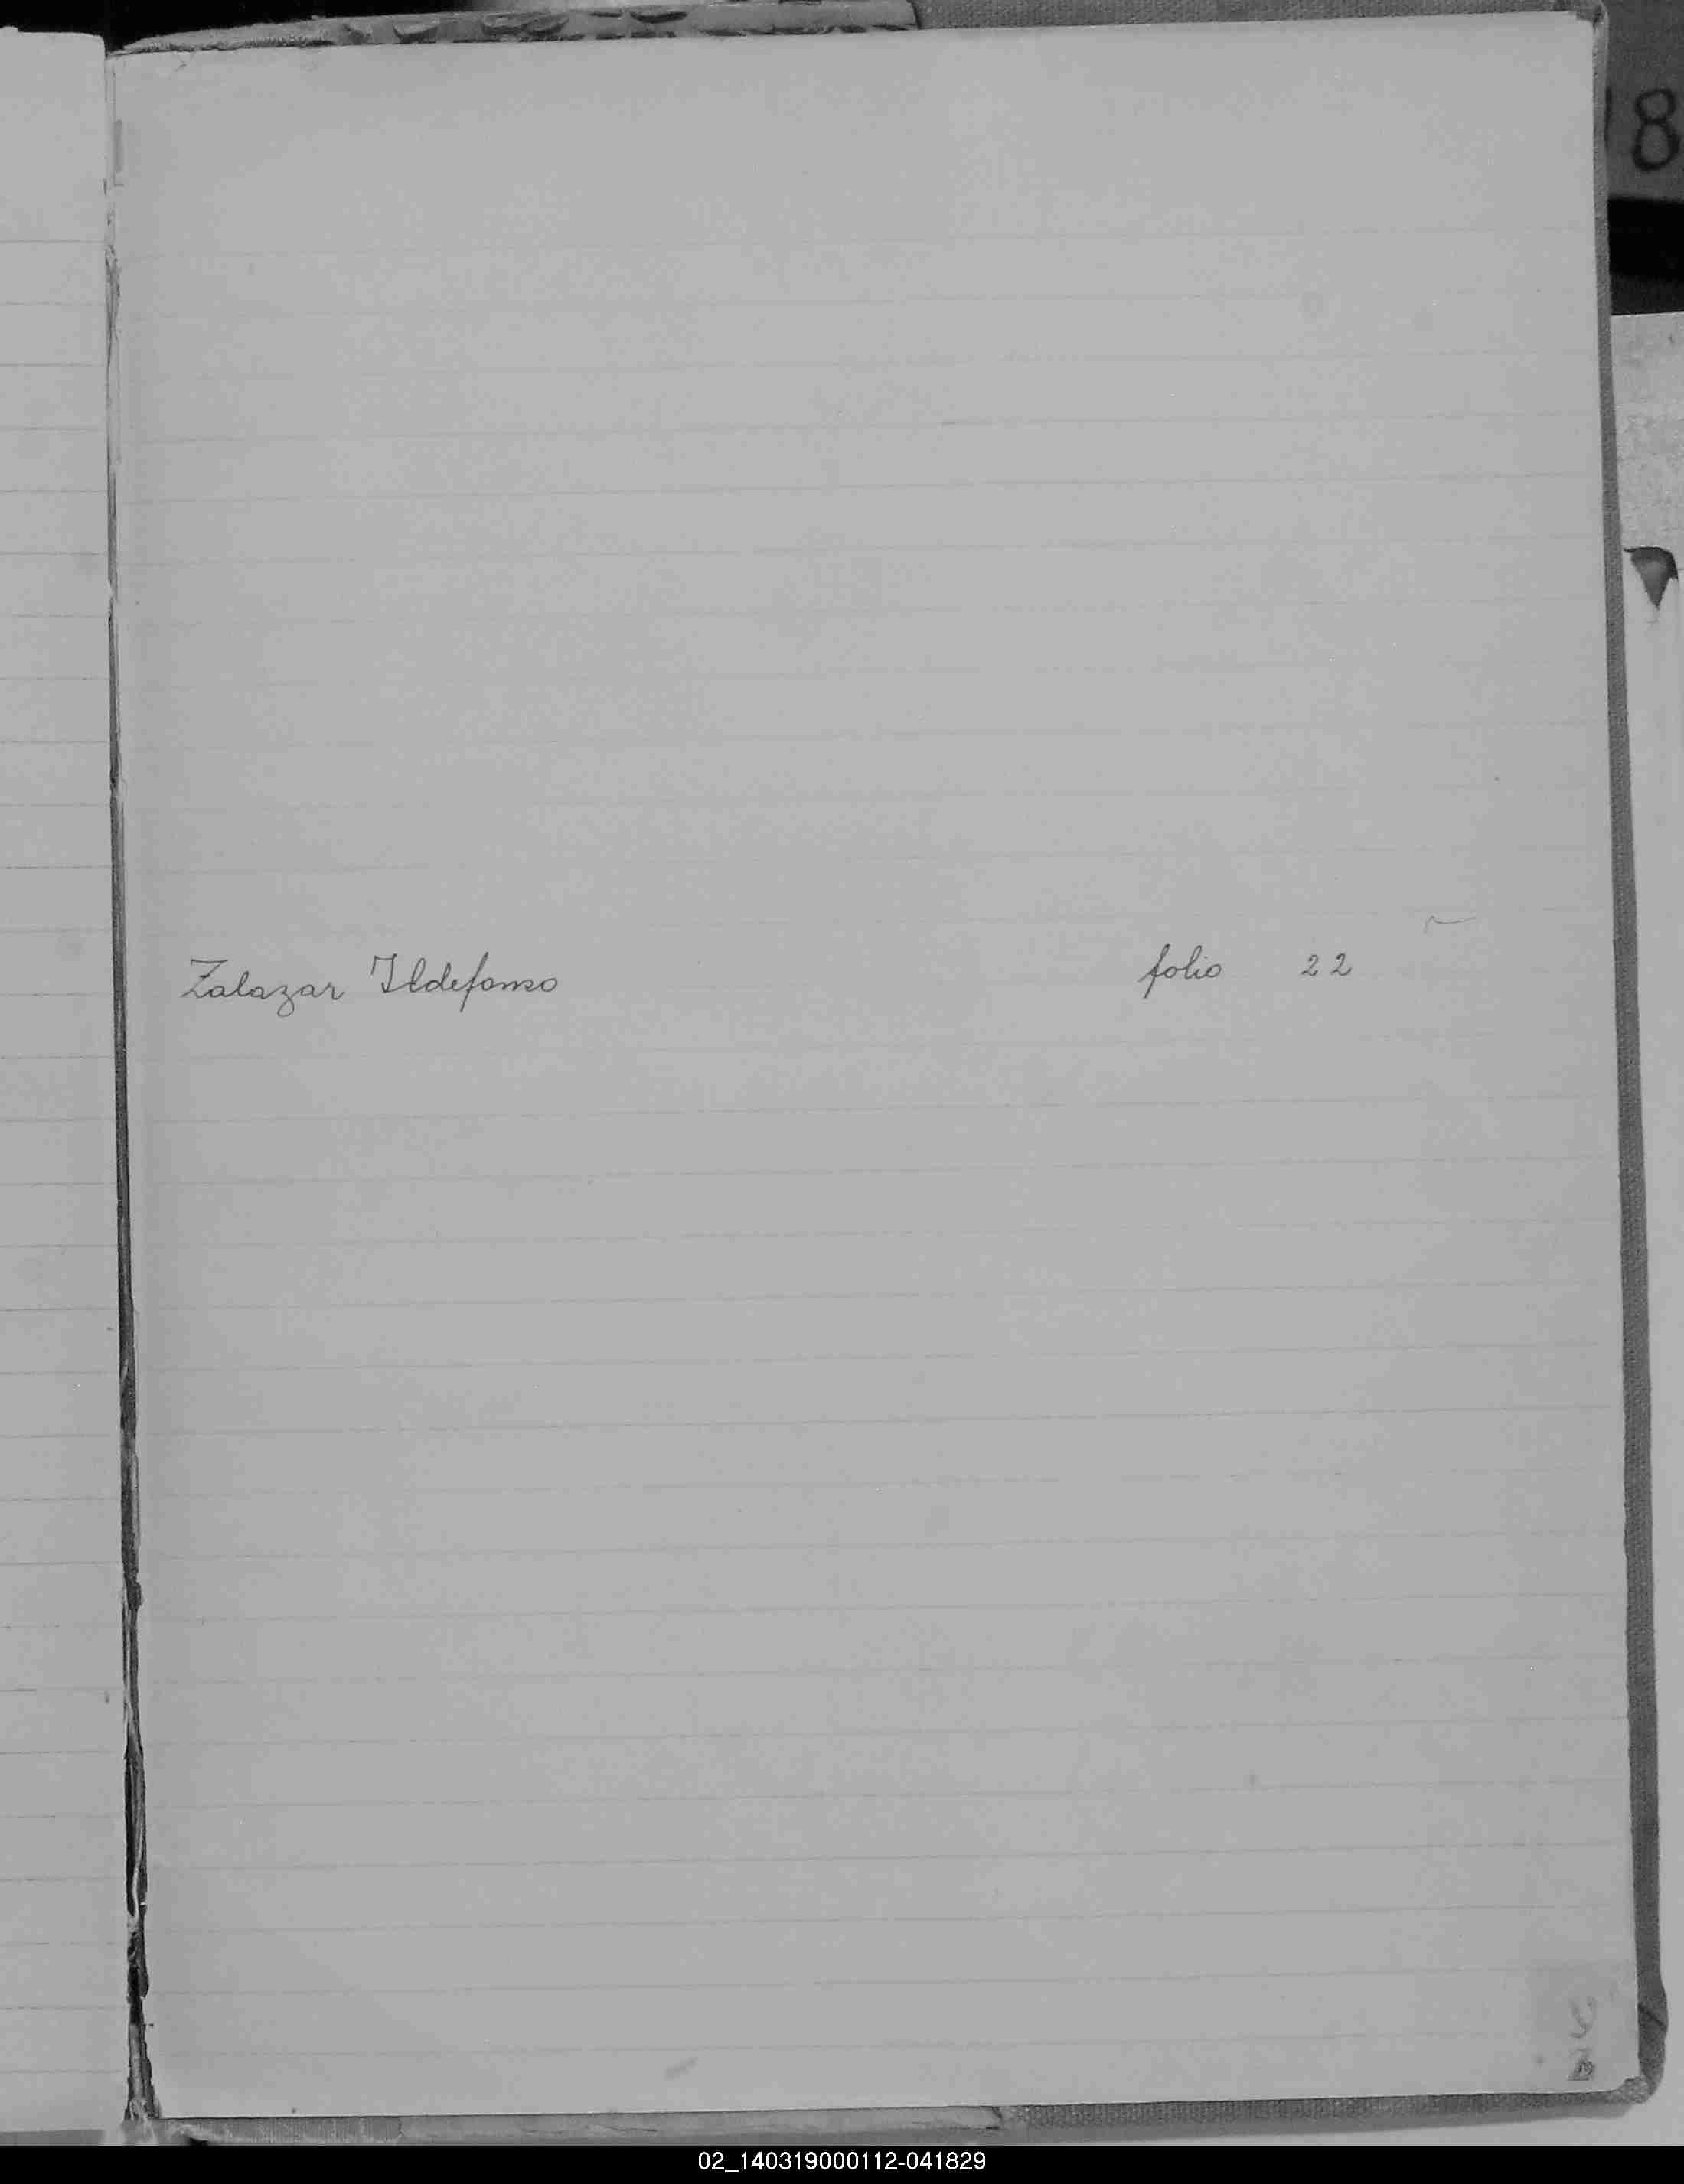 8
Zalazar Ildefonso folio 22
02_140319000112-041829